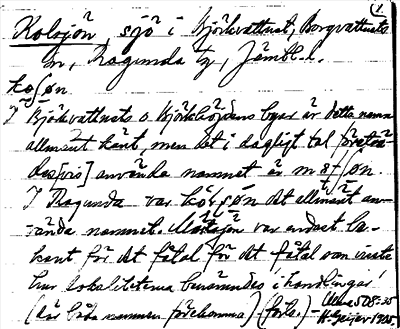 1.
Kolsjön, sjö i Björkvattnet, Borgvattnets
sn, Ragunda tg, Jämtl. l.
I Björkvattnets o. Björkhöjdens byar är detta namn
allmänt känt, men det i dagligt tal
använda namnet är
I Ragunda var det allmänt an-
vända namnet. var endast be-
kant för det fåtal för det fåtal som visste
hur lokaliteterna benämndes i handlingar
(där båda namnen förekomma) (forts.) –
H. Geijer 1935